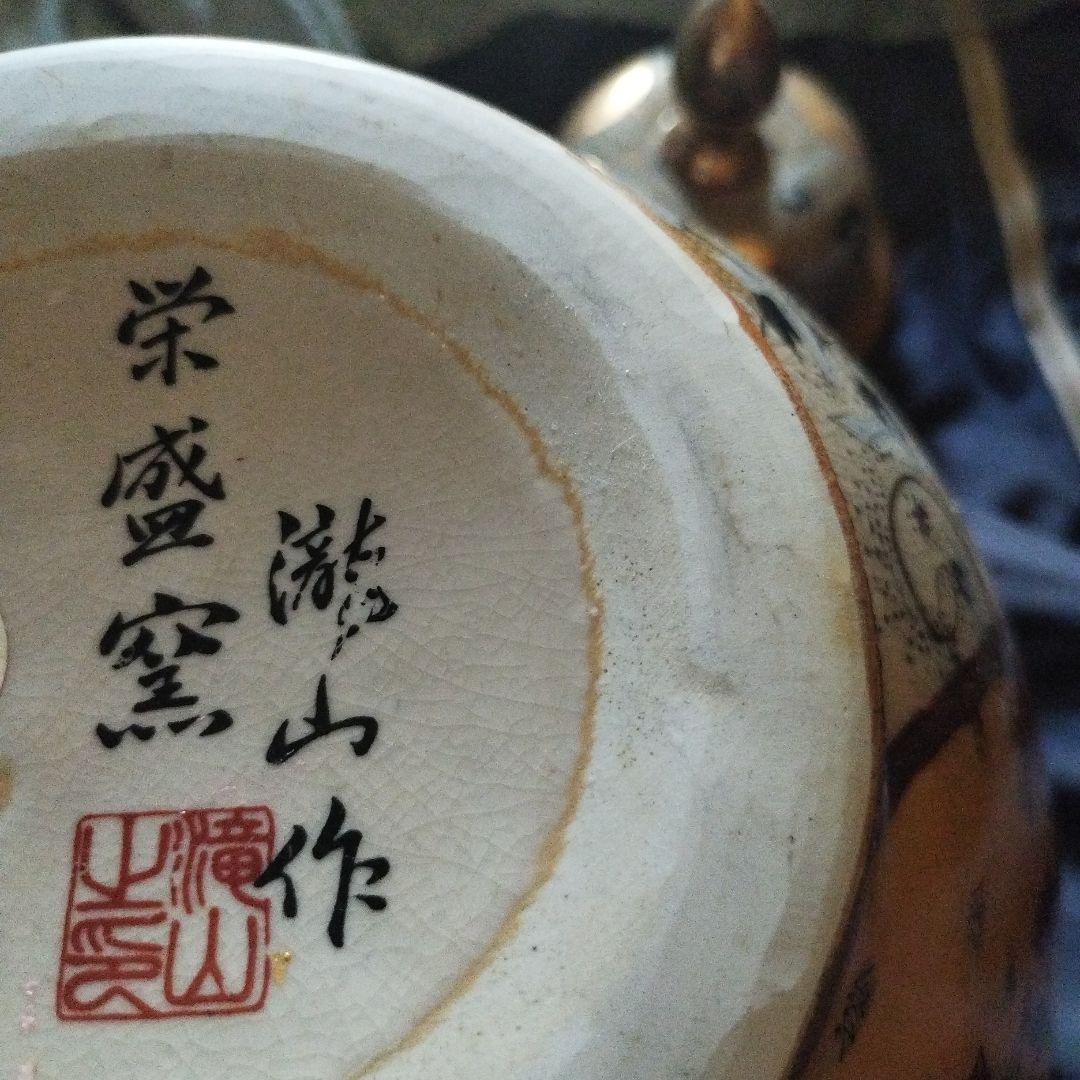 瀧山作
栄盛窯
滝山之印